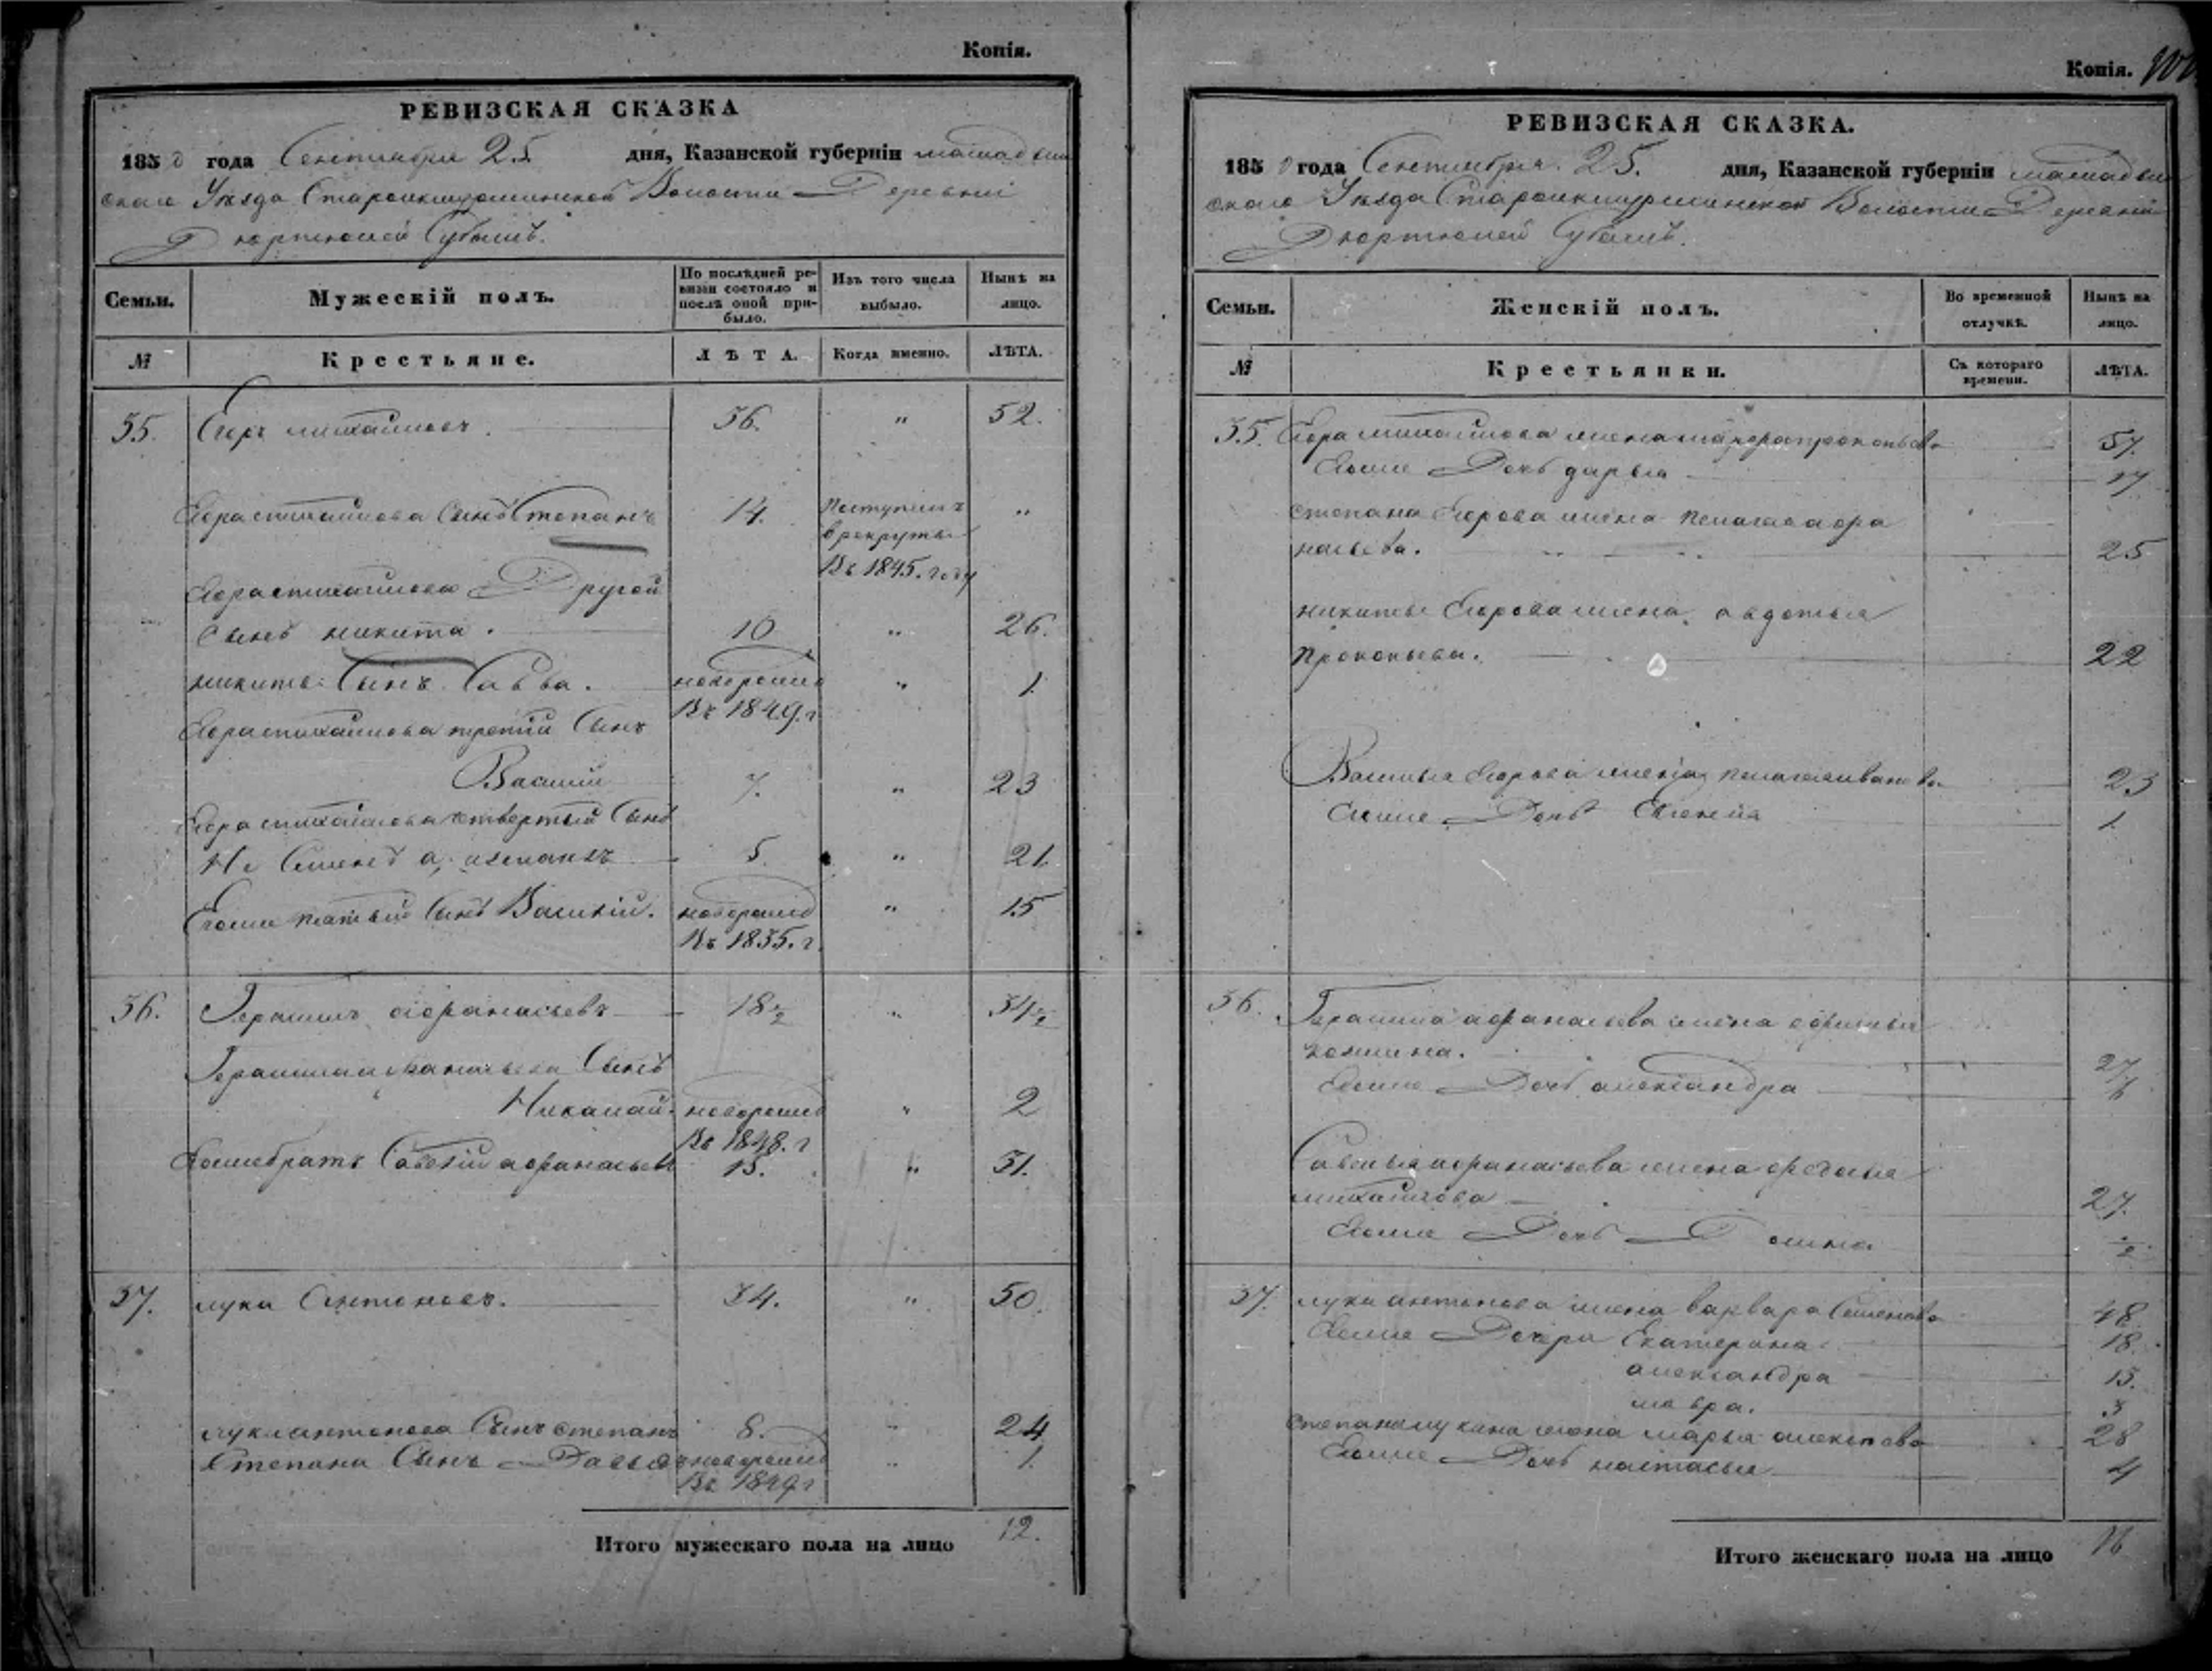 Копія.
РЕВИЗСКАЯ СКАЗКА
1850 года Сентября 25 дня, Казанской губерніи мамадыш
скаго Уезда Старокишурминской Волости Деревни
Дюртюлей Субашъ.
Семьи.
Мужескій полъ.
По последней ре-
визіи состояло и
после оной при-
было.
Изъ того числа
выбыло.
Ныне на
лицо.
№
Крестьяне.
ЛѢТА.
Когда именно.
ЛѢТА.
35. Егоръ михайловъ. 36. " 52.
Егора михайлова Сынъ Степанъ 14. Поступилъ "
в рекруты
Въ 1845. году
Егора михайлова Другой
Сынъ никита. 10 " 26.
никиты Сынъ Савва. новорожд " 1
Въ 1849. г
Егора михайлова третий Сынъ
Василій 7. " 23
Егора михайлова четвертый Сынъ
Не Семенъ а, степанъ 5. " 21
Егоже пятый Сынъ Василій. новорожд " 15
Въ 1835. г.
36. Герасимъ афанасьевъ 18½ " 34½
Герасима афанасьева Сынъ
Николай. новорожд " 2
Въ 1848. г
Егоже братъ Савелій афанасьевъ 15. " 31.
37. лука Антоновъ. 34. " 50.
луки антонова Сынъ степанъ 8. " 24
Степана Сынъ Давыдъ новорожд " 1.
Въ 1849 г
Итого мужескаго пола на лицо 12.
Копія.
РЕВИЗСКАЯ СКАЗКА.
1850 года Сентября 25. дня, Казанской губерніи мамадыш
скаго Уезда Старокишурминской Волости Деревни
Дюртюлей Субашъ.
Семьи.
Женскій полъ.
Во временной
отлучкѣ.
Нынѣ на
лицо.
№
Крестьянки.
Съ котораго
времени.
ЛѢТА.
35. Егора михайлова жена прокопьева 57.
Егоже Дочь дарья 17
степана Егорова жена пелагея афа
насьева. 25
никиты Егорова жена, авдотья
прокопьева. 22
Василья Егорова жена пелагея иванова 23
Егоже Дочь Евгенія 1.
36. Герасима афанасьева жена
27
Егоже Дочь александра
Савелья афанасьева жена
михайлова 27.
Егоже Дочь ½
37. луки антонова жена варвара Семенова 48
Егоже Дочери Екатерина 18.
александра 15.
мавра. 3
степана лукина жена марья алексеева 28
Егоже Дочь настасья 4
Итого женскаго пола на лицо 16